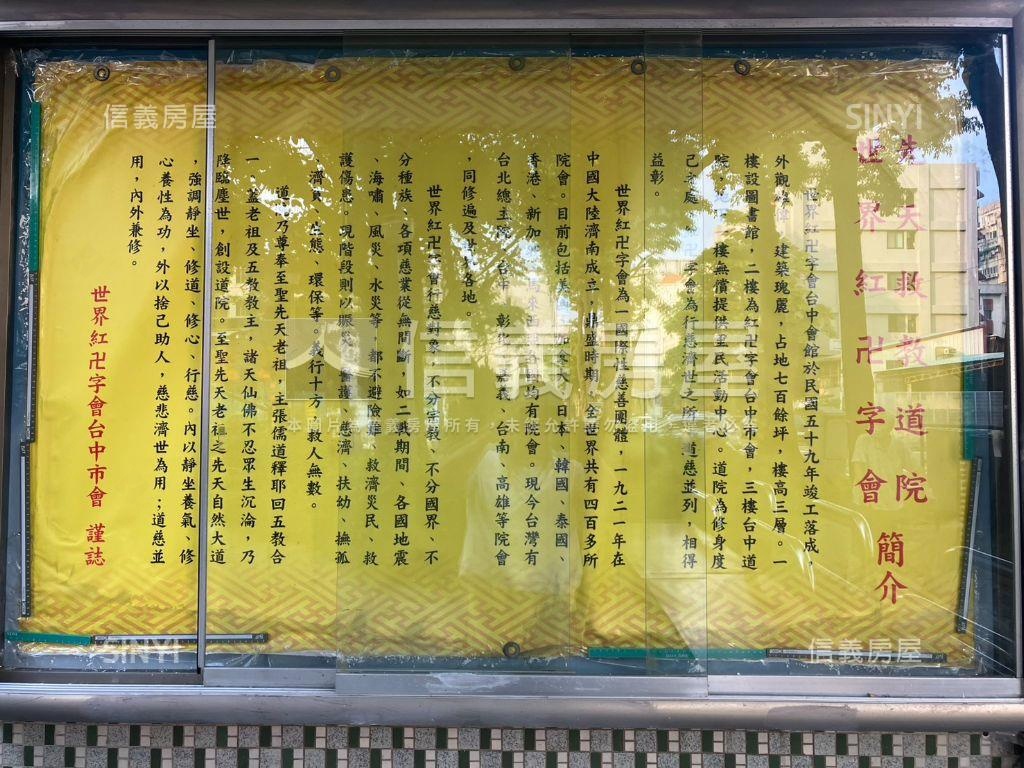 先天救教道院
世界紅卍字會
簡介
世界紅卍字會台中會館於民國五十九年竣工落成，
外觀雄偉、建築瑰麗，占地七百餘坪，樓高三層。一
樓設圖書館，二樓為紅卍字會台中市會，三樓台中道
院，樓無償提供里民活動中心。道院為修身度
己之處，字會為行慈濟世之所，道慈並列，相得
益彰。
世界紅卍字會為一國際性慈善團體，一九二一年在
中國大陸濟南成立，鼎盛時期，全世界共有四百多所
院會。目前包括美國、加拿大、日本、韓國、泰國、
香港、新加坡、馬來西亞等各國均有院會。現今台灣有
台北總主院、台中、彰化、嘉義、台南、高雄等院會
，同修遍及世界各地。
世界紅卍字會行慈對象，不分宗教、不分國界、不
分種族、各項慈業從無間斷，如二戰期間、各國地震
、海嘯、風災、水災等，都不避險難，救濟災民、救
護傷患。現階段則以賑災、醫護、慈濟、扶幼、撫孤
、濟貧、生態、環保等。義行十方，救人無數。
道院乃尊奉至聖先天老祖，主張儒道釋耶回五教合
一，蓋老祖及五教教主，諸天仙佛不忍眾生沉淪，乃
降臨塵世，創設道院。至聖先天老祖之先天自然大道
，強調靜坐、修道、修心、行慈。內以靜坐養氣、修
心養性為功，外以捨己助人，慈悲濟世為用；道慈並
用，內外兼修。
世界紅卍字會台中市會 謹誌
信義房屋
SINYI
信義房屋
本圖片為信義房屋所有，未經允許請勿盜用，違者必究
SINYI
信義房屋